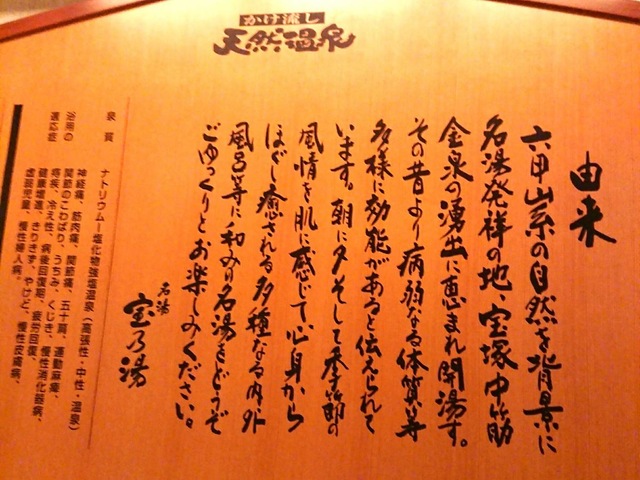 かけ流し
天然温泉
由来
六甲山系の自然を背景に
名湯発祥の地、宝塚中筋
金泉の湧出に恵まれ開湯す。
その昔より病弱なる体質等
多様に効能があると伝えられて
います。朝に夕そして季節の
風情を肌に感じて心身から
ほぐし癒される多種なる内外
風呂等に和み名湯をどうぞ
ごゆっくりとお楽しみください。
名湯
宝乃湯
泉質 ナトリウム－塩化物強塩温泉（高張性・中性・温泉）
浴用の適応症 神経痛、筋肉痛、関節痛、五十肩、運動麻痺、
関節のこわばり、うちみ、くじき、慢性消化器病、
痔疾、冷え性、病後回復期、疲労回復、
健康増進、きりきず、やけど、慢性皮膚病、
虚弱児童、慢性婦人病。